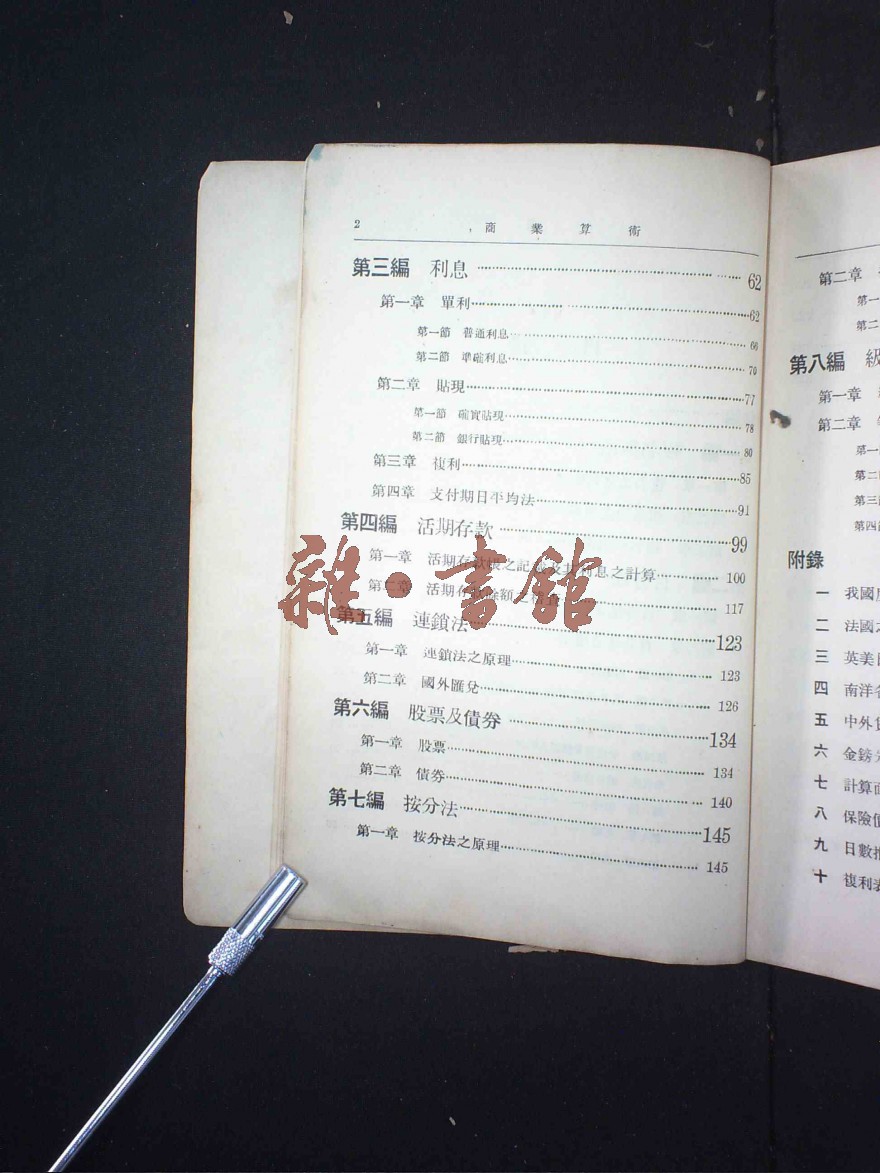 2 商業算術
第三編 利息 62
第一章 單利 62
第一節 普通利息 66
第二節 準確利息 70
第二章 貼現 77
第一節 確實貼現 78
第二節 銀行貼現 80
第三章 複利 85
第四章 支付期日平均法 91
第四編 活期存款 99
第一章 活期存款帳之記 息之計算 100
第二章 活期存款餘額之 117
第五編 連鎖法 123
第一章 連鎖法之原理 123
第二章 國外匯兌 126
第六編 股票及債券 134
第一章 股票 134
第二章 債券 140
第七編 按分法 145
第一章 按分法之原理 145
雜·書館
第二章
第一
第二
第八編 級
第一章
第二章
第一
第二
第三
第四
附錄
一 我國
二 法國
三 英美
四 南洋
五 中外
六 金鎊
七 計算
八 保險
九 日數
十 複利表